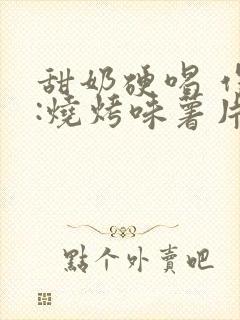 甜奶硬唱
:燒烤味薯片
點个外賣吧